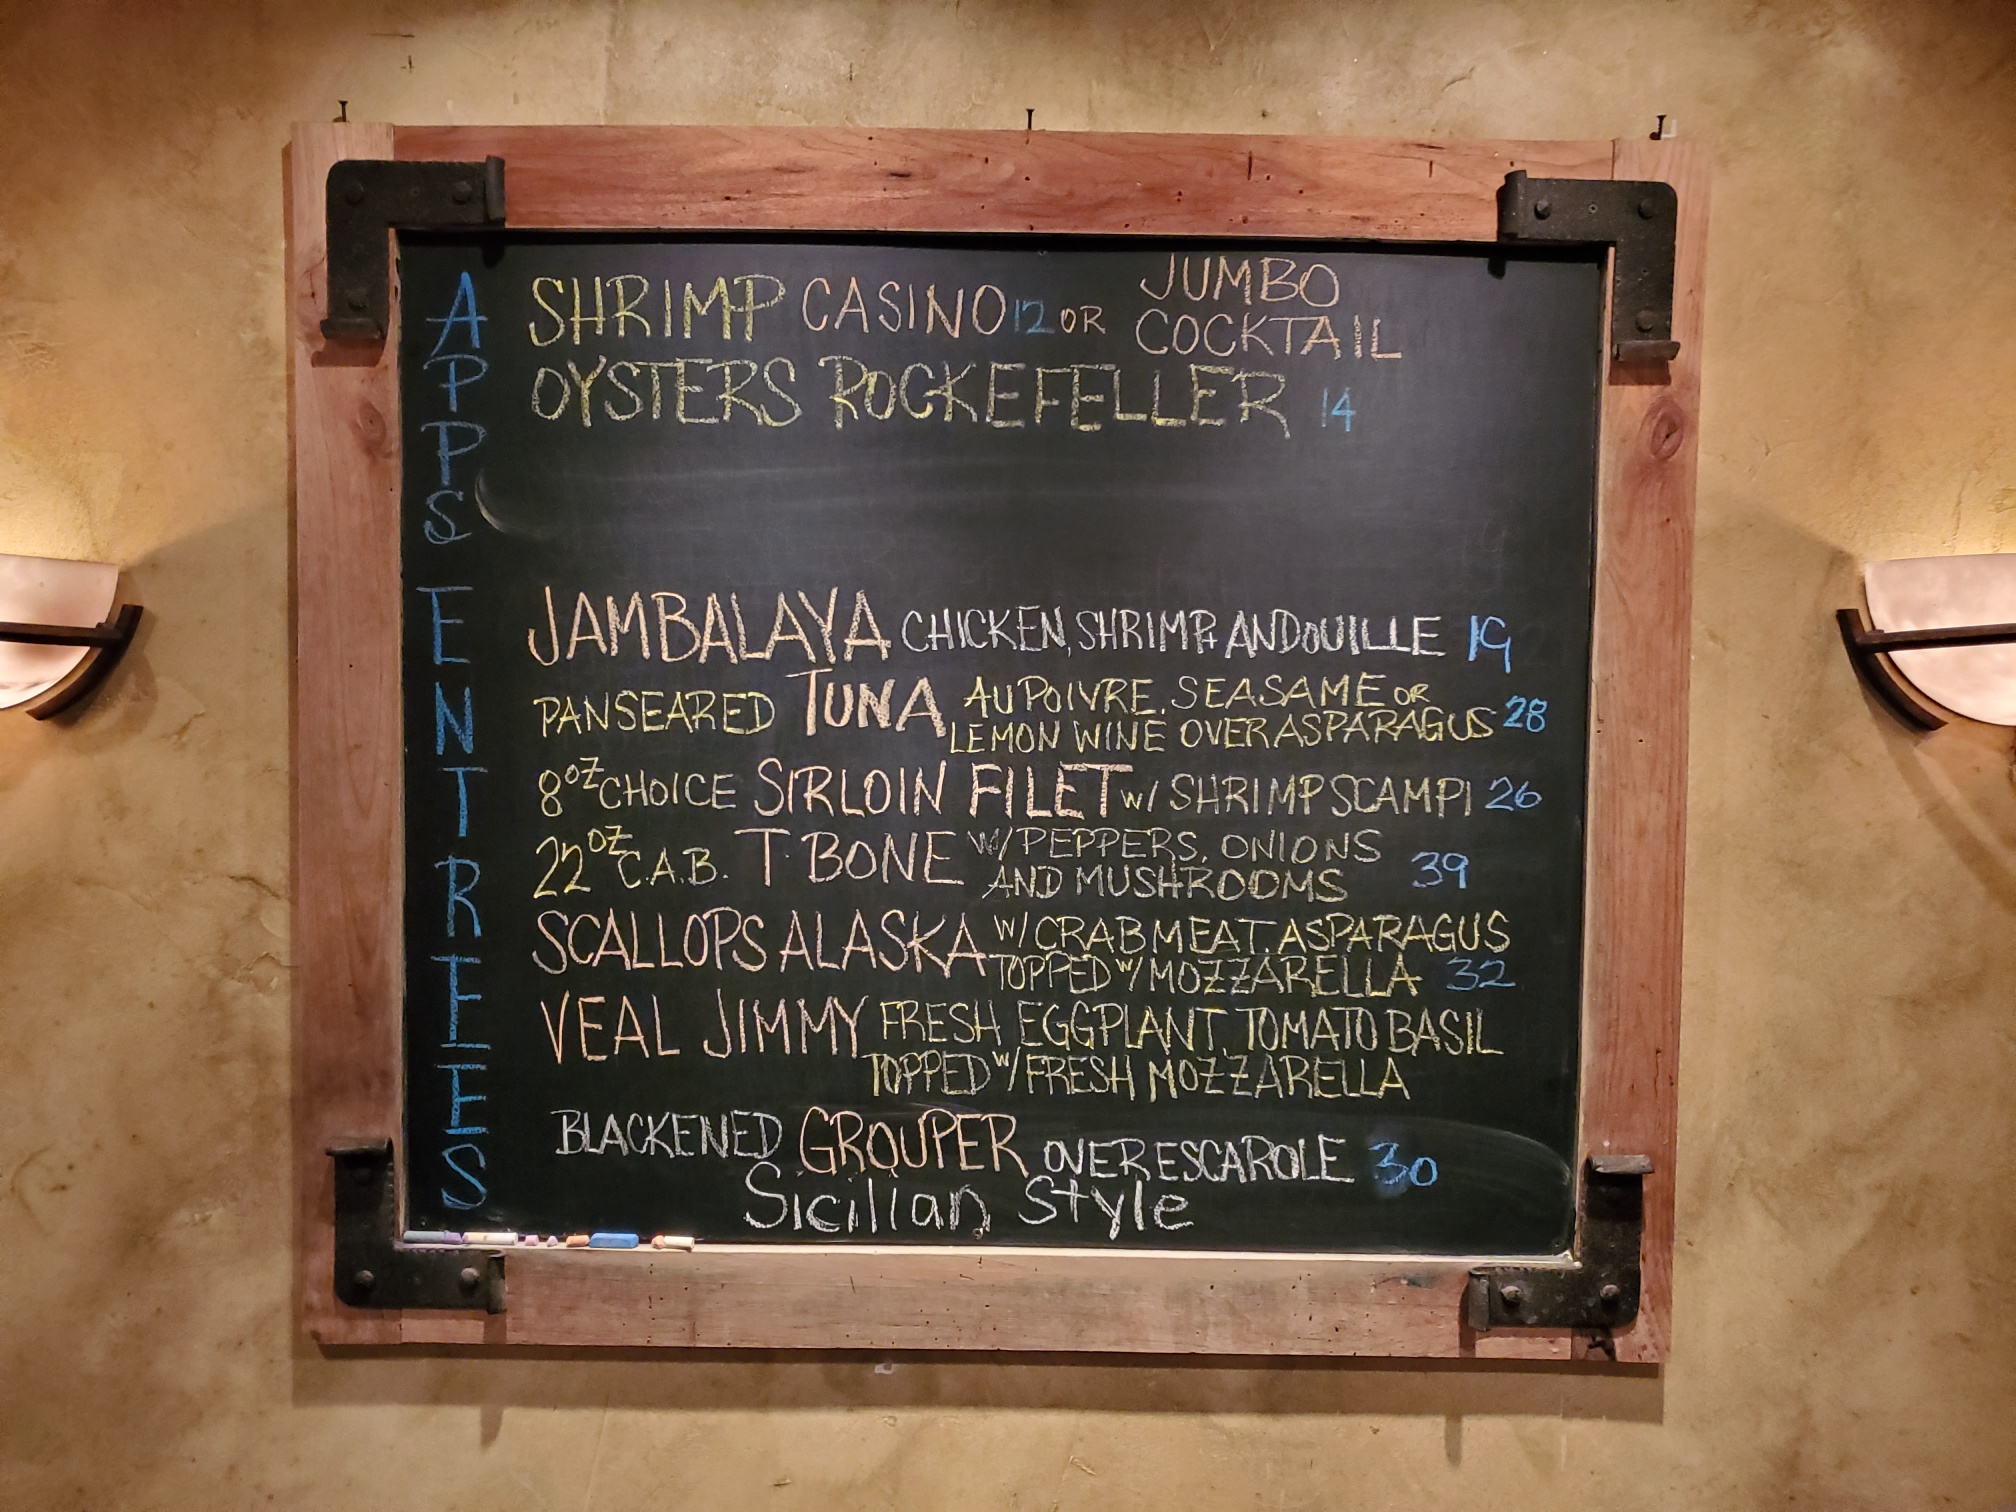 APPS
SHRIMP CASINO 12 OR JUMBO COCKTAIL
OYSTERS ROCKEFELLER 14
ENTREES
JAMBALAYA CHICKEN, SHRIMP, ANDOUILLE 19
PANSEARED TUNA AU POIVRE, SEASAME OR
LEMON WINE OVER ASPARAGUS 28
8OZ CHOICE SIRLOIN FILET W/ SHRIMP SCAMPI 26
22OZ C.A.B. T·BONE W/ PEPPERS, ONIONS
AND MUSHROOMS 39
SCALLOPS ALASKA W/ CRABMEAT, ASPARAGUS
TOPPED W/ MOZZARELLA 32
VEAL JIMMY FRESH EGGPLANT, TOMATO BASIL
TOPPED W/ FRESH MOZZARELLA
BLACKENED GROUPER OVER ESCAROLE 30
Sicilian Style